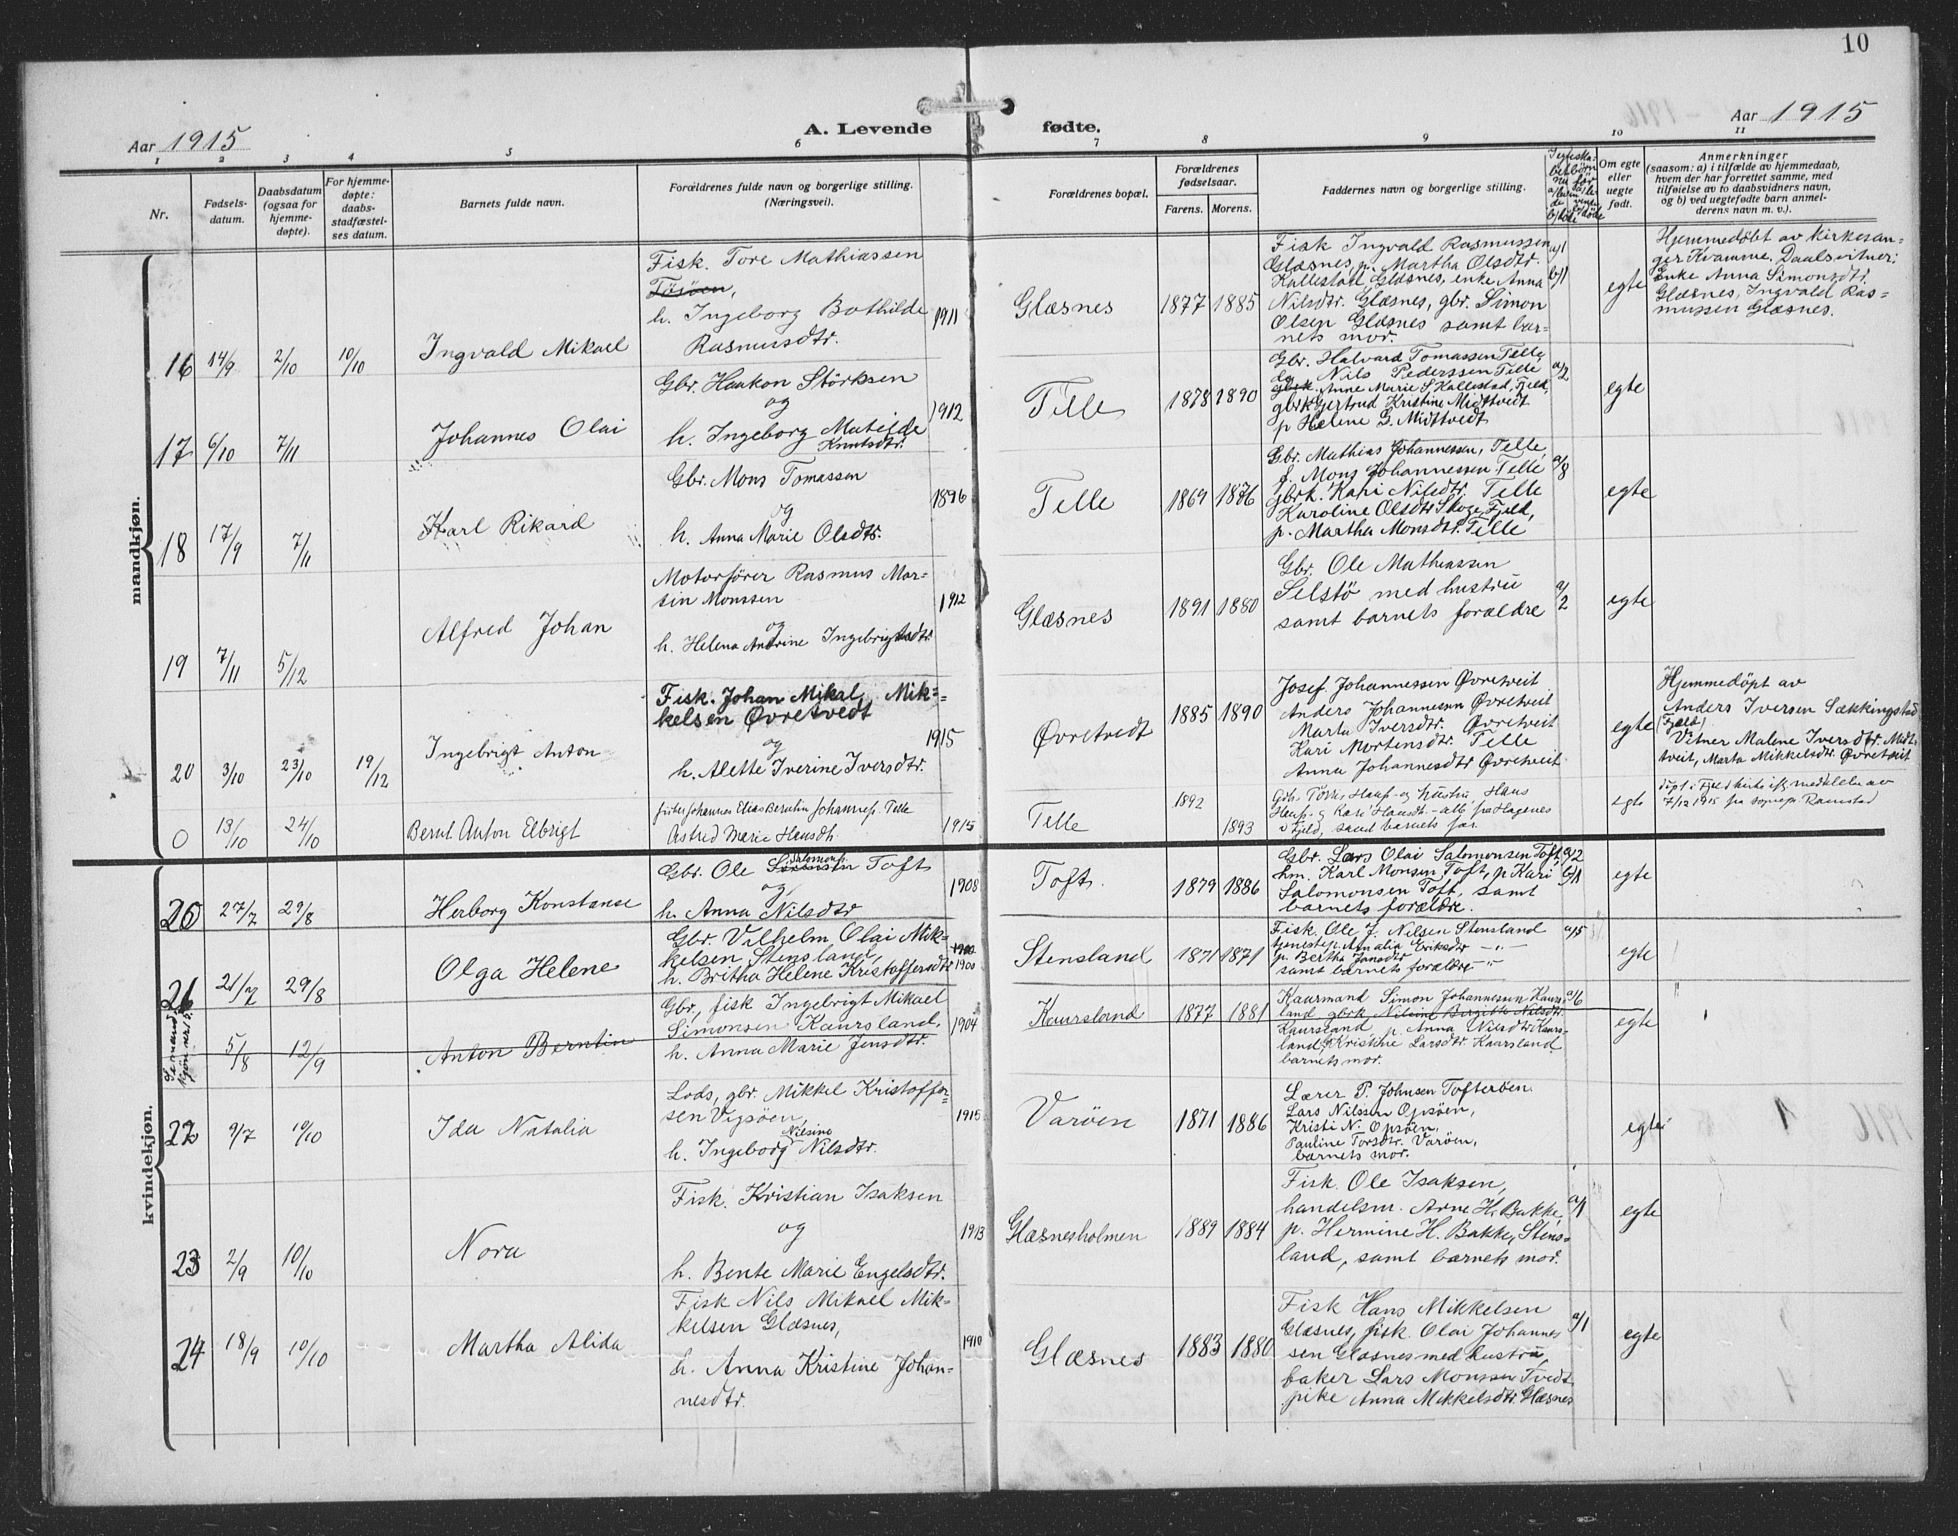 10
Aar 1915
A. Levende
fødte.
Aar 1915
1 2 3 4 5 6 7 8 9 10 11
Nr.
Fødsels-
datum.
Daabsdatum
(ogsaa for
hjemme-
døpte).
For hjemme-
døpte:
daabs-
stadfæstel-
ses datum.
Barnets fulde navn.
Forældrenes fulde navn og borgerlige stilling.
(Næringsvei).
Forældrenes bopæl.
Forældrenes
fødselsaar.
Farens. Morens.
Faddernes navn og borgerlige stilling.
Om egte
eller
uegte
født.
Anmerkninger
(saasom: a) i tilfælde av hjemmedaab,
hvem der har forrettet samme, med
tilføielse av to daabsvidners navn,
og b) ved uegtefødte barn anmel-
derens navn m. v.).
mandkjøn.
16 14/9 2/10 10/10 Ingvald Mikael
Fisk. Tore Mathiassen
Tøsøen,
h. Ingeborg Bothilde
Rasmusdtr.
1911
Glæsnes 1877 1885
Fisk Ingvald Rasmussen
Glæsnes, p. Martha Olsdtr.
Kallestad, Glæsnes, enke Anna
Nilsdtr. Glæsnes, gbr. Simon
Olsen Glæsnes samt bar-
nets mor.
a/1
b/1
egte
Hjemmedøbt av kirkesan-
ger Kvamme. Daabsvitner:
Enke Anna Simonsdtr.
Glæsnes, Ingvald Ras-
mussen Glæsnes.
17 6/10 7/11 Johannes Olai
Gbr. Haakon Størksen
og
h. Ingeborg Matilde
Knutsdtr.
1912
Telle 1878 1890
Gbr. Halvard Tomassen Telle
do Nils Pederssen Telle
gbrk. Anne Marie S. Kallestad, Fjeld,
gbrk Gjertrud Kristine Midttveit
p Helene G. Midttvedt
a/2
egte
18 17/9 7/11 Karl Rikard
Gbr. Mons Tomassen
og
h. Anna Marie Olsdtr.
1896
Telle 1869 1876
Gbr. Mathias Johannessen, Telle,
f. Mons Johannessen Telle
gbrk. Kari Nilsdtr. Telle
Karoline Olsdtr Skoge, Fjeld,
p. Martha Monsdtr. Telle
a/8
egte
19 7/11 5/12 Alfred Johan
Motorfører Rasmus Mar-
tin Monssen
og
h. Helena Andrine Ingebrigtsdtr.
1912
Glæsnes 1891 1880
Gbr. Ole Mathiassen
Selstø med hustru
samt barnets forældre
a/2
egte
20 3/10 23/10 19/12 Ingebrigt Anton
Fisk. Johan Mikal Mik-
kelsen Øvretvedt
og
h. Alette Iverine Iversdtr.
1915
Øvretvedt 1885 1890
Josef Johannessen Øvretveit
Anders Johannessen Øvretveit
Marta Iversdtr. Øvretveit
Kari Mortensdtr. Telle
Anna Johannesdtr Øvretveit
egte
Hjemmedøpt av
Anders Iversen Sækkingstad
(Fjeld)
Vitner Malene Iversdtr. Midt-
tveit, Marta Mikkelsdtr. Øvretveit
0 13/10 24/10 Bernt Anton Elbrigt
fisker Johannes Elias Berntin Johanness. Telle
Astrid Marie Hansdtr.
1915
Telle 1892 1893
egte
kvindekjøn.
20 27/7 29/8 Herborg Konstanse
Gbr. Ole Salomons. Toft
og
h. Anna Nilsdtr
1908
Toft. 1879 1886
Gbr. Lars Olai Salomonsen Toft,
hm. Karl Monsen Toft, p. Kari
Salomonsen Toft, samt
barnets forældre.
a/2
b/1
egte
21 21/7 29/8 Olga Helene
Gbr. Vilhelm Olai Mik-
kelsen Stensland,
h. Britha Helene Kristoffersdtr
1900
1900
Stensland 1871 1871
Fisk. Ole J. Nilsen Stensland
tjenestep. Amalia Eriksdtr — " —
p. Bertha Jonsdtr
samt barnets forældre — " —
a/5
egte
Se mand-
kjøn nr 15.
5/8 12/9 Anton Berntin
Gbr, fisk Ingebrigt Mikael
Simonsen Kaursland,
h. Anna Marie Jensdtr.
1904
Kaursland 1877 1881
Kaarmand Simon Johannesen Kaurs-
land gbrk. Nilsine Birgithe Nilsdtr.
Kaursland, p. Anna Nilsdtr. Kaurs-
land, Kristine Larsdtr. Kaursland
barnets mor.
a/6
egte
22 9/7 10/10 Ida Natalia
Lods, gbr. Mikkel Kristoffer-
sen Vigsøen,
h. Ingeborg Nilsine Nilsdtr.
1915
Varøen 1871 1886
Lærer P. Johnsen Tofterøen
Lars Nilssen Opsøen,
Kristi N. Opsøen,
Pauline Torsdtr. Varøen,
barnets mor.
egte
1
1916
23 2/9 10/10 Nora
Fisk. Kristian Isaksen
og
h. Bente Marie Engelsdtr.
1913
Glæsnesholmen 1889 1884
Fisk. Ole Isaksen,
handelsm. Arne H. Bakke,
p. Hermine H. Bakke, Stens-
land, samt barnets mor.
a/1
egte
24 18/9 10/10 Martha Alida
Fisk Nils Mikael Mik-
kelsen Glæsnes,
h. Anna Kristine Johan-
nesdtr.
1910
Glæsnes 1883 1880
Fisk Hans Mikkelsen
Glæsnes, fisk. Olai Johannes
sen Glæsnes med hustru,
baker Lars Monssen Tvedt
pike Anna Mikkelsdtr. Glæsnes
a/1
egte